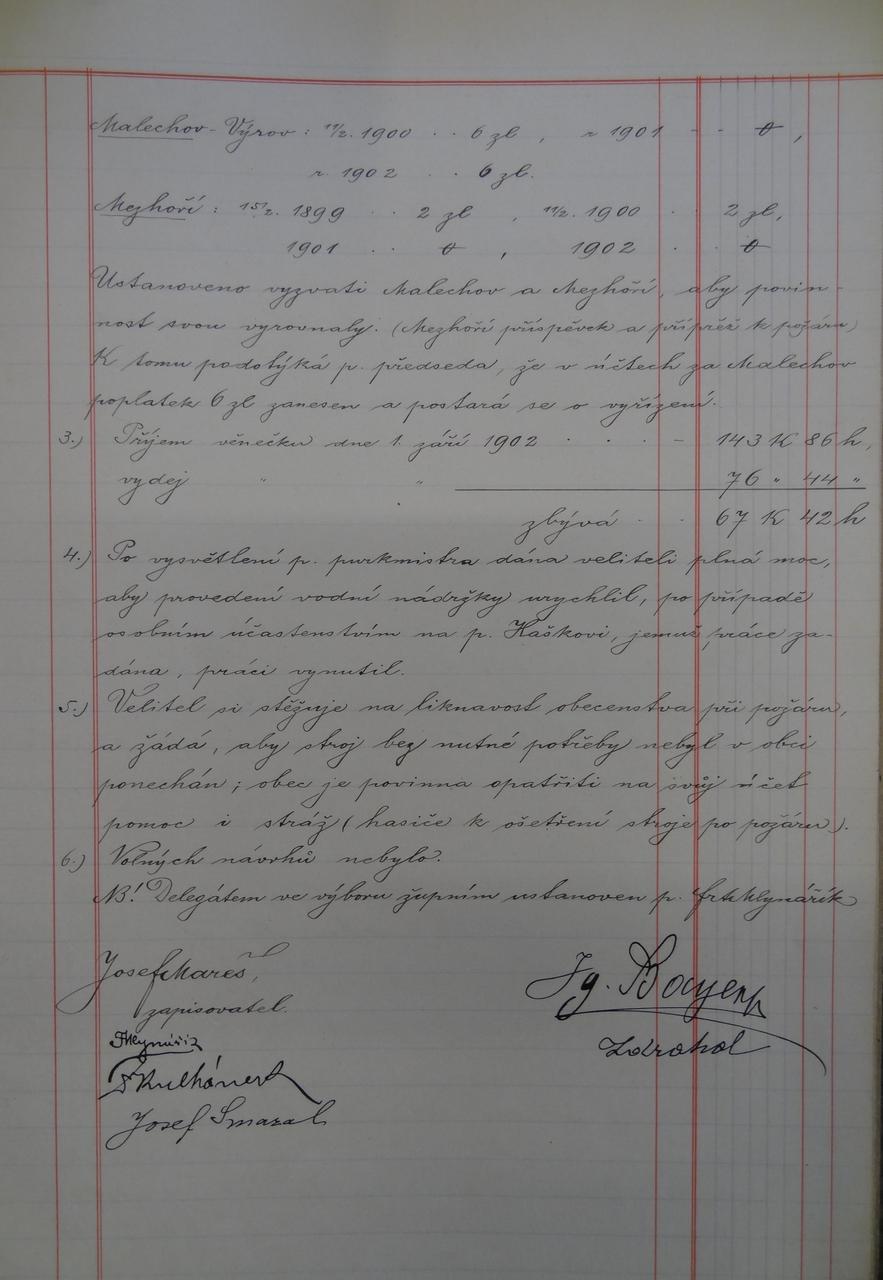 Malechov-Výrov : 11/2. 1900 . . 6 zl , r 1901 - - 0 ,
r. 1902 . . 6 zl.
Mezhoří : 15/2. 1899 . . 2 zl , 11/2. 1900 . . 2 zl,
1901 . . 0 , 1902 . . 0
Ustanoveno vyzvati Malechov a Mezhoří, aby povin-
nost svou vyrovnaly. (Mezhoří příspěvek a přípřež k požáru)
K tomu podotýká p. předseda, že v účtech za Malechov
poplatek 6 zl zanesen a postará se o vyřízení.
3.) Příjem věnečku dne 1. září 1902 . . . - 143 K 86 h,
vydej " " 76 " 44 "
zbývá . . 67 K 42 h
4.) Po vysvětlení p. purkmistra dána veliteli plná moc,
aby provedení vodní nádržky urychlil, po případě
osobním účastenstvím na p. Haškovi, jemuž práce za-
dána, práci vynutil.
5.) Velitel si stěžuje na liknavost obecenstva při požáru,
a žádá, aby stroj bez nutné potřeby nebyl v obci
ponechán; obec je povinna opatřiti na svůj účet
pomoc i stráž (hasiče k ošetření stroje po požáru).
6.) Volných návrhů nebylo.
NB! Delegátem ve výboru župním ustanoven p. Frt. Mlynářík
Josef Mareš,
zapisovatel.
Ig. Bayer
FMlynářík
Zdrahal
Kulhánek
Josef Smazal